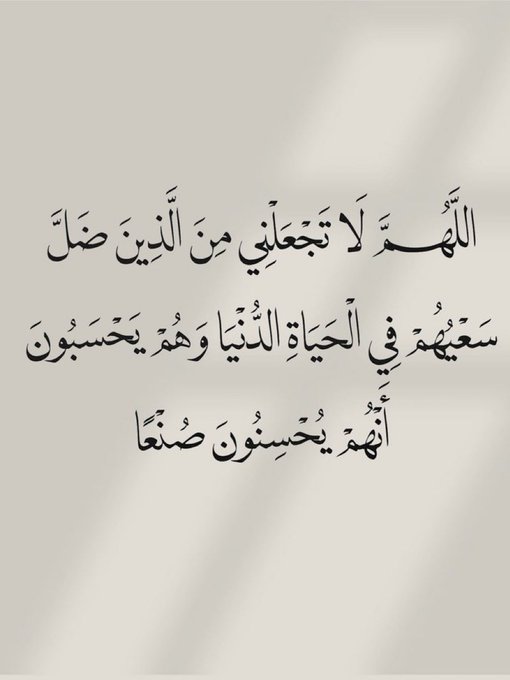 اللَّهُمَّ لَا تَجْعَلْنِي مِنَ الَّذِينَ ضَلَّ
سَعْيُهُمْ فِي الْحَيَاةِ الدُّنْيَا وَهُمْ يَحْسَبُونَ
أَنَّهُمْ يُحْسِنُونَ صُنْعًا